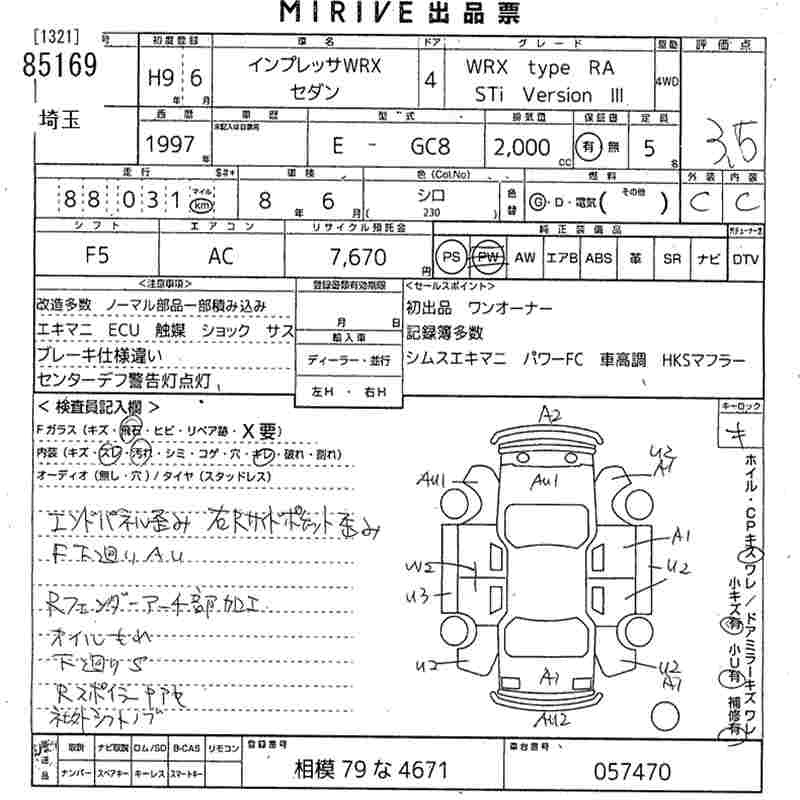 MIRIVE 出品票
[1321] 号 初度登録 車名 ドア グレード 駆動 評価点
85169 H9 年 6 月 インプレッサWRX セダン 4 WRX type RA STi Version III 4WD 3.5
埼玉 西暦 車歴 型式 排気量 保証書 定員
1997 年 未記入は自家用 E - GC8 2,000 cc 有 無 5 名
走行 $#* 車検 色(Col.No) 燃料 外装 内装
88031 マイル km 8 年 6 月 シロ ( 230 ) 色替 G・D・電気( その他 ) C C
シフト エアコン リサイクル預託金 純正装備品
F5 AC 7,670 円 PS PW AW エアB ABS 革 SR ナビ DTV
<注意事項> 登録書類有効期限 <セールスポイント>
改造多数 ノーマル部品一部積み込み 初出品 ワンオーナー
エキマニ ECU 触媒 ショック サス 月 日 記録簿多数
ブレーキ仕様違い 輸入車 シムスエキマニ パワーFC 車高調 HKSマフラー
センターデフ警告灯点灯 ディーラー・並行
左H・右H
<検査員記入欄> キーロック
Fガラス(キズ・飛石・ヒビ・リペア跡・X要) キ
内装(キズ・スレ・汚れ・シミ・コゲ・穴・キレ・破れ・割れ)
オーディオ(無し・穴)/タイヤ(スタッドレス)
エンドパネル歪み 右Rサイドポケット歪み
F下廻りAU
Rフェンダーアーチ部加工
オイルもれ
下廻りS
Rスポイラー
社外シフトノブ
A2
AU1 AU1 U2 A1
A1
W2 U2
U3
U2 A1 U2 A1
AU2
ホイル・CPキズ ワレ/ドアミラーキズ ワレ
小キズ有 小U有 補修有
取説 ナビ取説 ロム/SD B-CAS リモコン 登録番号 車台番号
ナンバー スペアキー キーレス スマートキー 相模 79 な 4671 057470